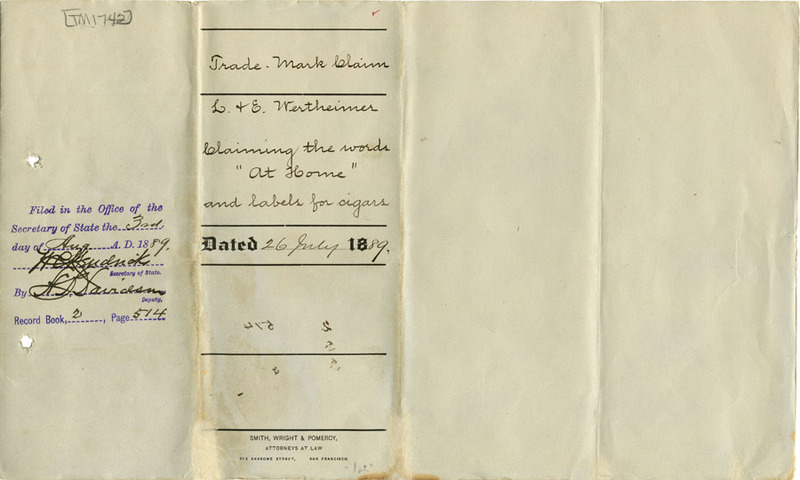 [TM1742]
Filed in the Office of the
Secretary of State the 3rd
day of Aug A. D. 1889.
Secretary of State.
By
Deputy,
Record Book, 2, Page 514
Trade-Mark Claim
L. & E. Wertheimer
Claiming the words
"At Home"
and labels for cigars
Dated 26 July 1889.
SMITH, WRIGHT & POMEROY,
ATTORNEYS AT LAW
SANSOME STREET, SAN FRANCISCO.